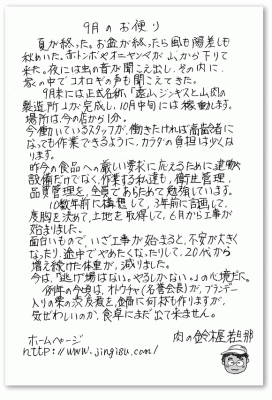 9月のお便り
夏が終った。お盆が終ったら風も陽差しも
秋めいた。赤トンボやオニヤンマが山から下りて
来た。夜には虫の音が聞こえ出し、その内に、
家の中でコオロギの声も聞こえてきた。
9月末には正式名称「遠山ジンギスと山肉の
製造所」が完成し、10月中旬には稼動します。
場所は今の店から1分。
今働いているスタッフが、働きたければ高齢者に
なっても作業できるように、カラダの負担は少なく
なります。
昨今の食品への厳しい要求に応えるために建物
設備だけでなく、作業する私達も、衛生管理、
品質管理を、全員であらためて勉強しています。
10数年前に構想して、3年前に計画して、
度胸を決めて、土地を取得して、6月から工事が
始まりました。
面白いもので、いざ工事が始まると、不安が大きく
なったり、途中でやめたくなったりして、20代から
増え続けた体重が、減りました。
今は、「逃げ場はない。やるしかない。」の心境だ。
例年の今頃は、オトウチャ(名誉会長)が、ブランデー
入りの栗の渋皮煮を、
気ぜわしいのか、食卓にまだ出て来ません。
ホームページ
http://www.jingisu.com/
肉の鈴木屋若旦那